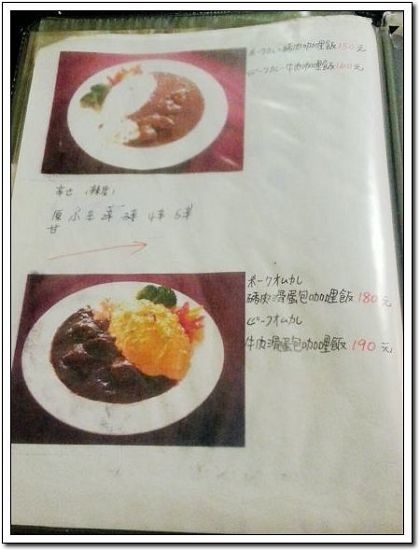 ポークカレー 豬肉咖哩飯 150元
ビーフカレー 牛肉咖哩飯 160元
辛さ
原 小辛 2辛 3辛 4辛 5辛
甘
ポークオムカレ
豬肉滑蛋包咖哩飯 180元
ビーフオムカレ
牛肉滑蛋包咖哩飯 190元